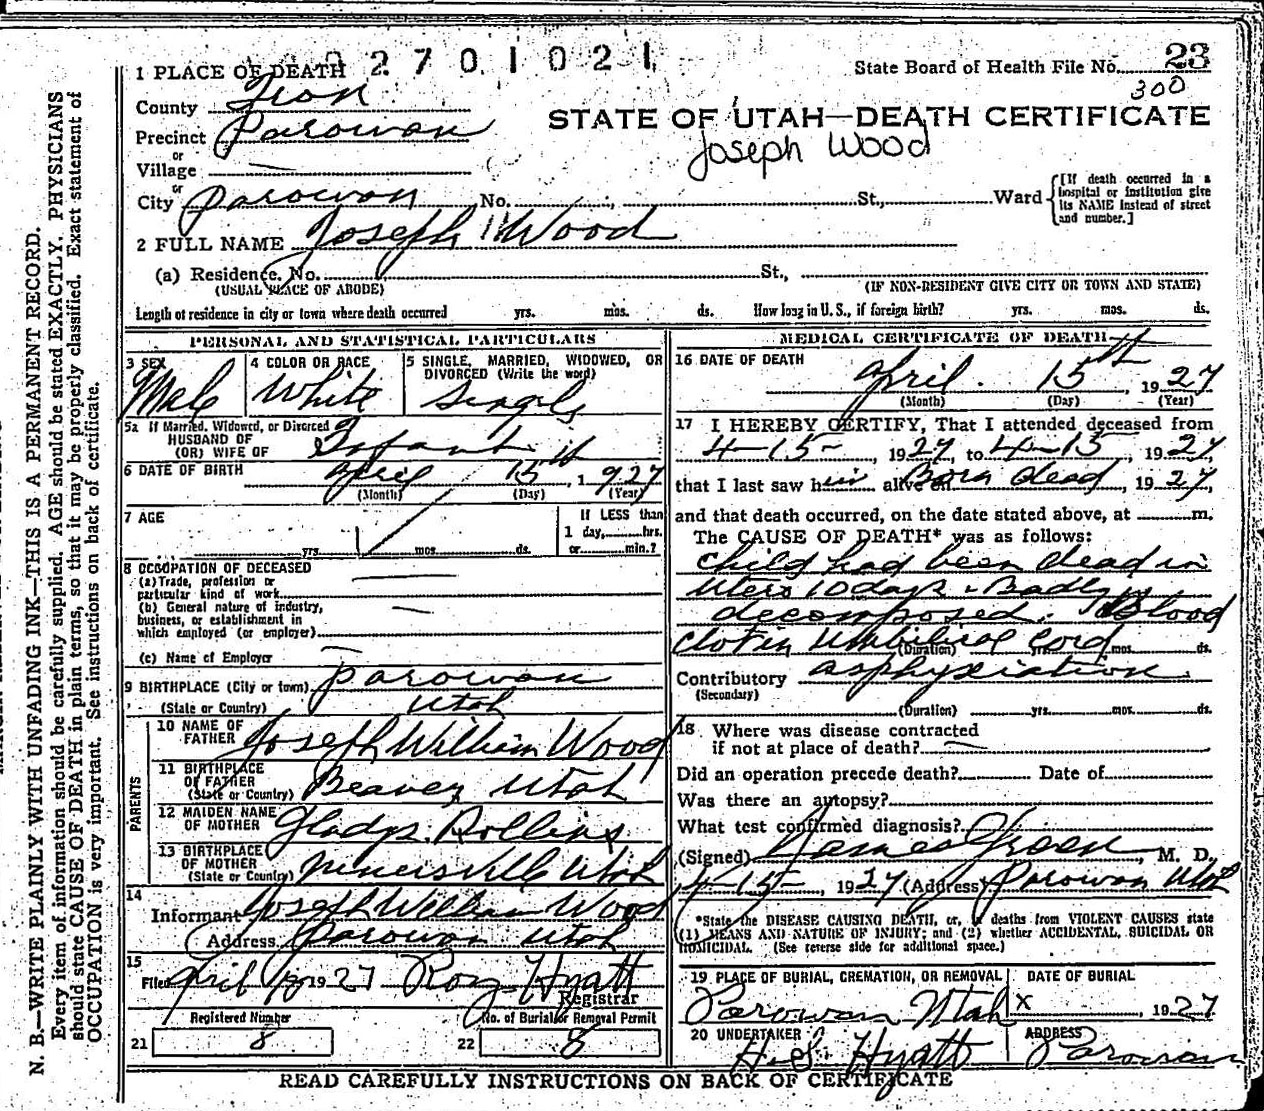 2 7 0 1 0 2 1
State Board of Health File No. 23
300
STATE OF UTAH—DEATH CERTIFICATE
Joseph Wood
1 PLACE OF DEATH
County Iron
Precinct Parowan
or
Village
or
City Parowan No. St., Ward
[If death occurred in a hospital or institution give its NAME instead of street and number.]
2 FULL NAME Joseph Wood
(a) Residence, No. St.,
(USUAL PLACE OF ABODE) (IF NON-RESIDENT GIVE CITY OR TOWN AND STATE)
Length of residence in city or town where death occurred yrs. mos. ds. How long in U. S., if foreign birth? yrs. mos. ds.
PERSONAL AND STATISTICAL PARTICULARS
3 SEX Male
4 COLOR OR RACE White
5 SINGLE, MARRIED, WIDOWED, OR DIVORCED (Write the word) Single
5a If Married, Widowed, or Divorced
HUSBAND OF
(OR) WIFE OF Infant
6 DATE OF BIRTH April 15th, 1927
(Month) (Day) (Year)
7 AGE yrs. mos. ds.
If LESS than
1 day, hrs.
or min.?
8 OCCUPATION OF DECEASED
(a) Trade, profession or
particular kind of work
(b) General nature of industry,
business, or establishment in
which employed (or employer)
(c) Name of Employer
9 BIRTHPLACE (City or town) Parowan
(State or Country) Utah
PARENTS
10 NAME OF FATHER Joseph William Wood
11 BIRTHPLACE OF FATHER (State or Country) Beaver Utah
12 MAIDEN NAME OF MOTHER Gladys Rollins
13 BIRTHPLACE OF MOTHER (State or Country) Minersville Utah
14
Informant Joseph William Wood
Address Parowan Utah
15
Filed April 1927 Roy Hyatt
Registrar
Registered Number No. of Burial or Removal Permit
21 8 22 8
MEDICAL CERTIFICATE OF DEATH
16 DATE OF DEATH
April 15th, 1927
(Month) (Day) (Year)
17 I HEREBY CERTIFY, That I attended deceased from
4-15-, 1927, to 4-15, 1927,
that I last saw him alive on Born dead, 1927,
and that death occurred, on the date stated above, at m.
The CAUSE OF DEATH* was as follows:
Child had been dead in
Utero 10 days - Badly
decomposed. Blood
Clot in Umbilical Cord
(Duration) mos. ds.
Contributory asphyxiation
(Secondary)
(Duration) yrs. mos. ds.
18 Where was disease contracted
if not at place of death?
Did an operation precede death? Date of
Was there an autopsy?
What test confirmed diagnosis?
(Signed) James Green, M. D.
4-15-, 1927 (Address) Parowan Utah
*State the DISEASE CAUSING DEATH, or, if deaths from VIOLENT CAUSES state
(1) MEANS AND NATURE OF INJURY; and (2) whether ACCIDENTAL, SUICIDAL OR
HOMICIDAL. (See reverse side for additional space.)
19 PLACE OF BURIAL, CREMATION, OR REMOVAL DATE OF BURIAL
Parowan Utah x, 1927
20 UNDERTAKER ADDRESS
H.S. Hyatt Parowan
READ CAREFULLY INSTRUCTIONS ON BACK OF CERTIFICATE
N. B.—WRITE PLAINLY WITH UNFADING INK—THIS IS A PERMANENT RECORD.
Every item of information should be carefully supplied. AGE should be stated EXACTLY. PHYSICIANS
should state CAUSE OF DEATH in plain terms, so that it may be properly classified. Exact statement of
OCCUPATION is very important. See instructions on back of certificate.